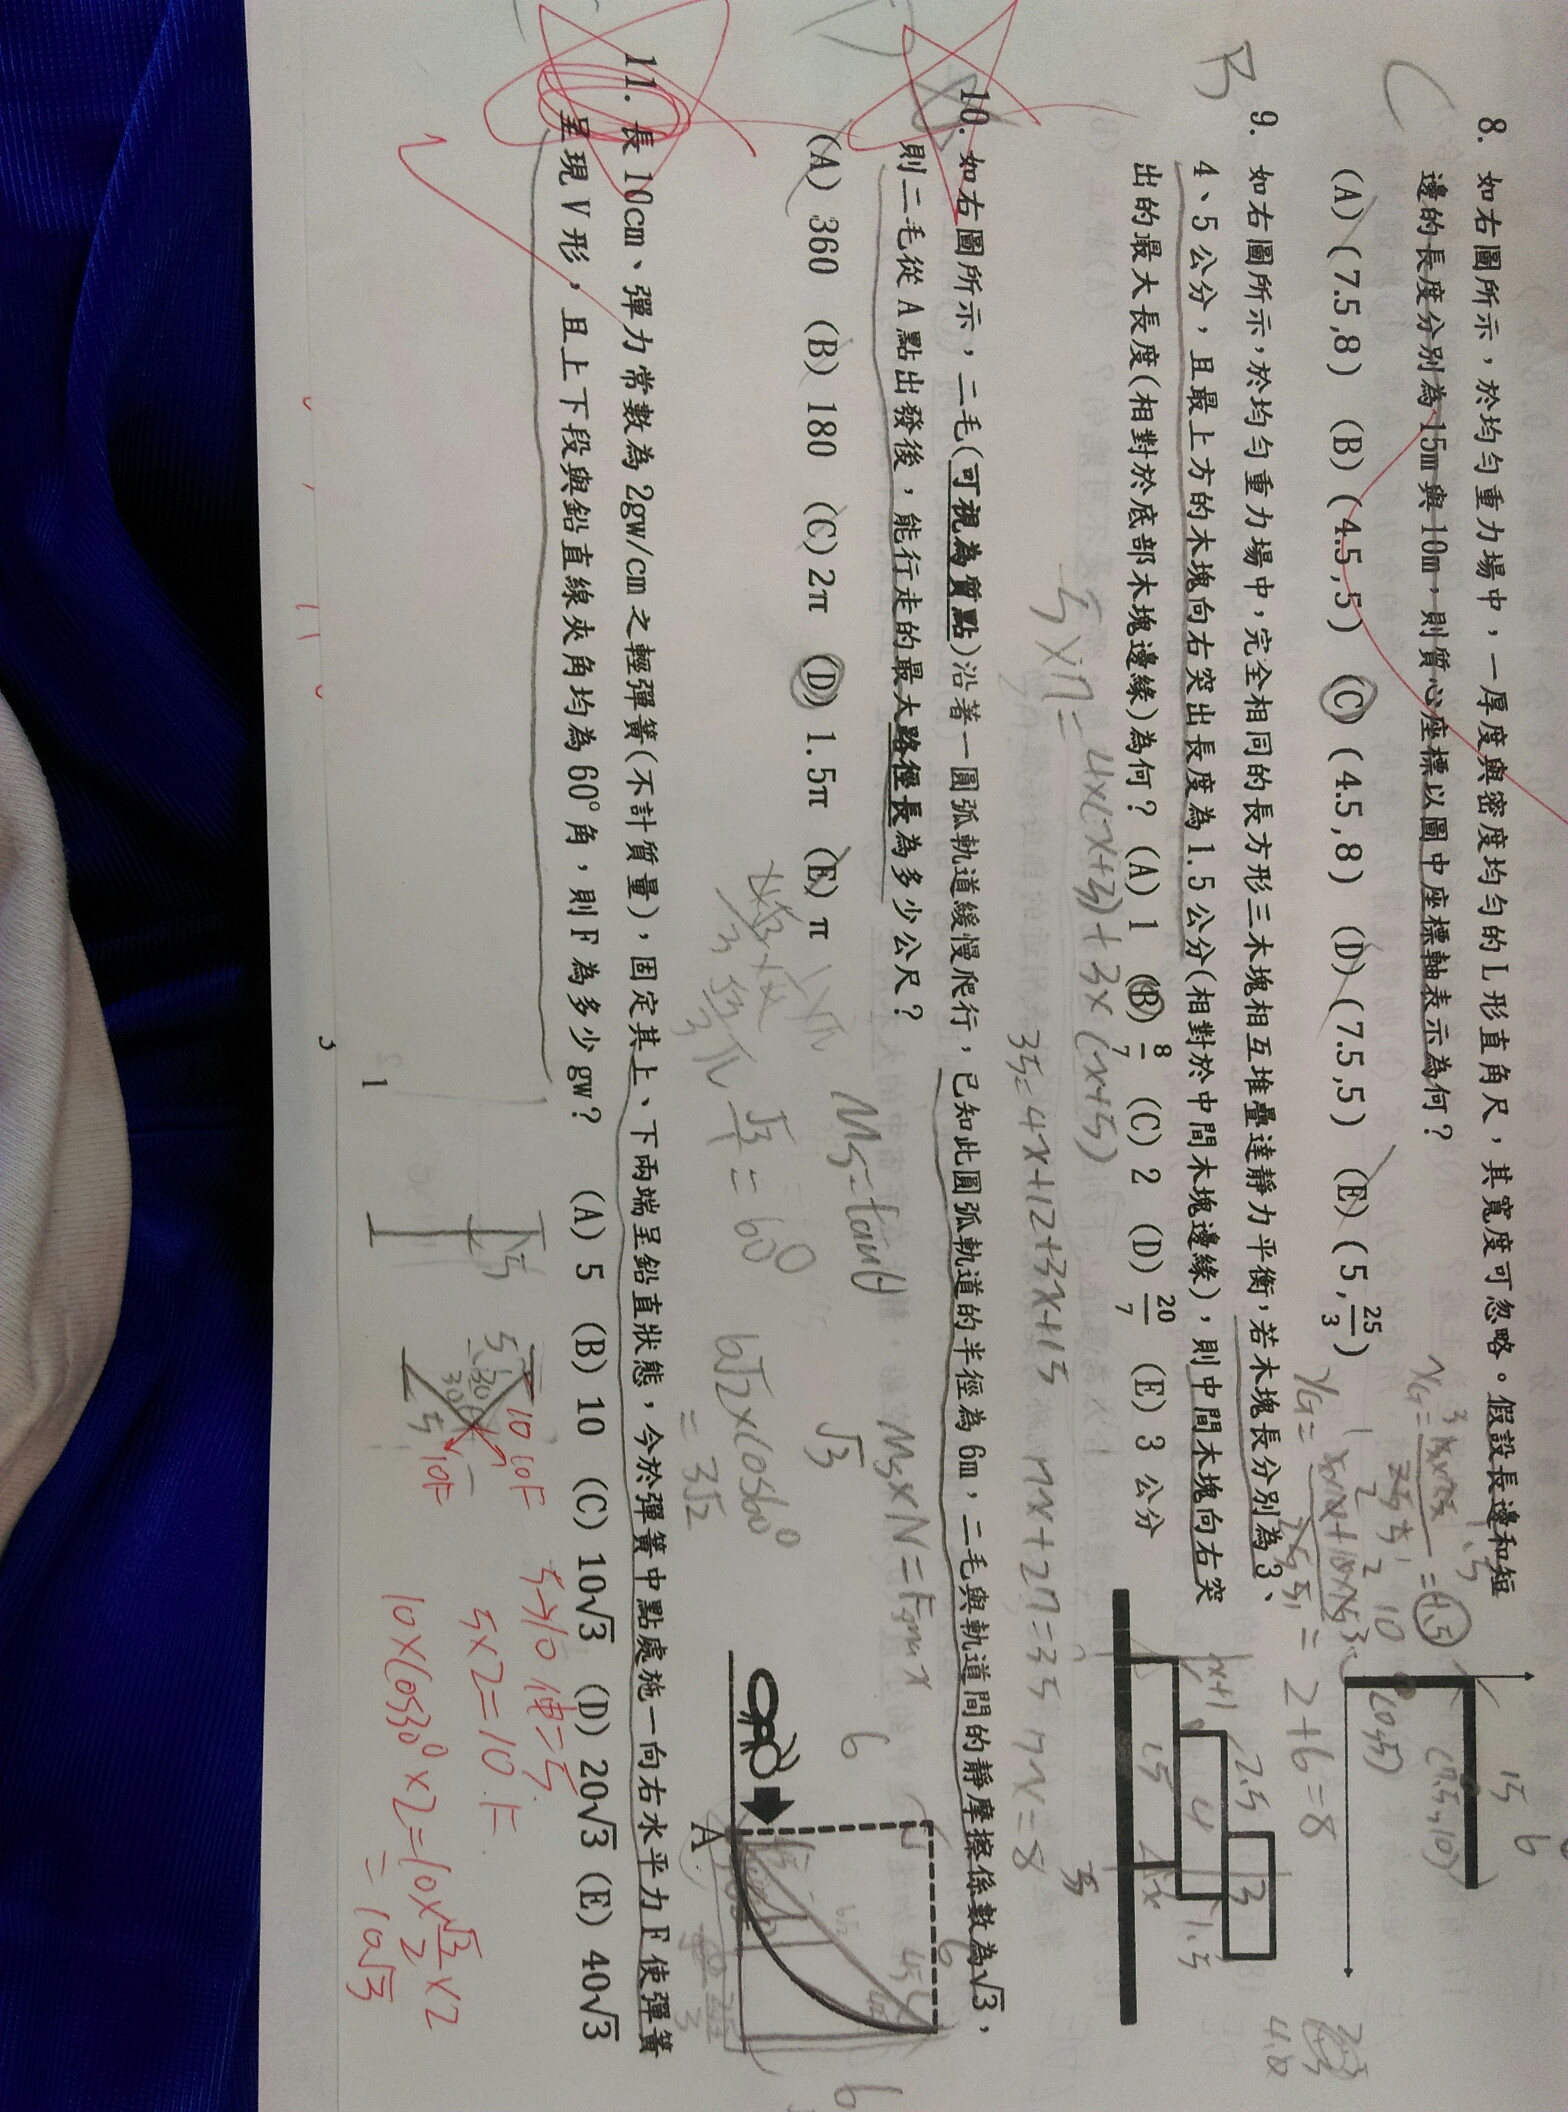 8. 如右圖所示，於均勻重力場中，一厚度與密度均勻的L形直角尺，其寬度可忽略。假設長邊和短
邊的長度分別為15m與10m，則質心座標以圖中座標軸表示為何？
(A)(7.5,8) (B)(4.5,5) (C)(4.5,8) (D)(7.5,5) (E)(5,25/3)
C
9. 如右圖所示，於均勻重力場中，完全相同的長方形三木塊相互堆疊達靜力平衡，若木塊長分別為3、
4、5公分，且最上方的木塊向右突出長度為1.5公分(相對於中間木塊邊緣)，則中間木塊向右突
出的最大長度(相對於底部木塊邊緣)為何？(A)1 (B)8/7 (C)2 (D)20/7 (E)3公分
B
4x(-x+3)+3x(-x+5)
35=4x+12+3x+15
7x+27=35
7x=8
2+6=8
15
6
3
4
1.5
2.5
10. 如右圖所示，二毛(可視為質點)沿著一圓弧軌道緩慢爬行，已知此圓弧軌道的半徑為6m，二毛與軌道間的靜摩擦係數為√3，
則二毛從A點出發後，能行走的最大路徑長為多少公尺？
(A)360 (B)180 (C)2π (D)1.5π (E)π
Ms=tanθ
Ms×N=Fsmax
√3
√3/1=60°
6√2×cos60°
=3√2
6
A
11. 長10cm、彈力常數為2gw/cm之輕彈簧(不計質量)，固定其上、下兩端呈鉛直狀態，今於彈簧中點處施一向右水平力F使彈簧
呈現V形，且上下段與鉛直線夾角均為60°角，則F為多少gw？ (A)5 (B)10 (C)10√3 (D)20√3 (E)40√3
5→10 伸=5
5×2=10.F
10×cos30°×2=10×√3/2×2
=10√3
10
10F
10F
5
30
30
1
3